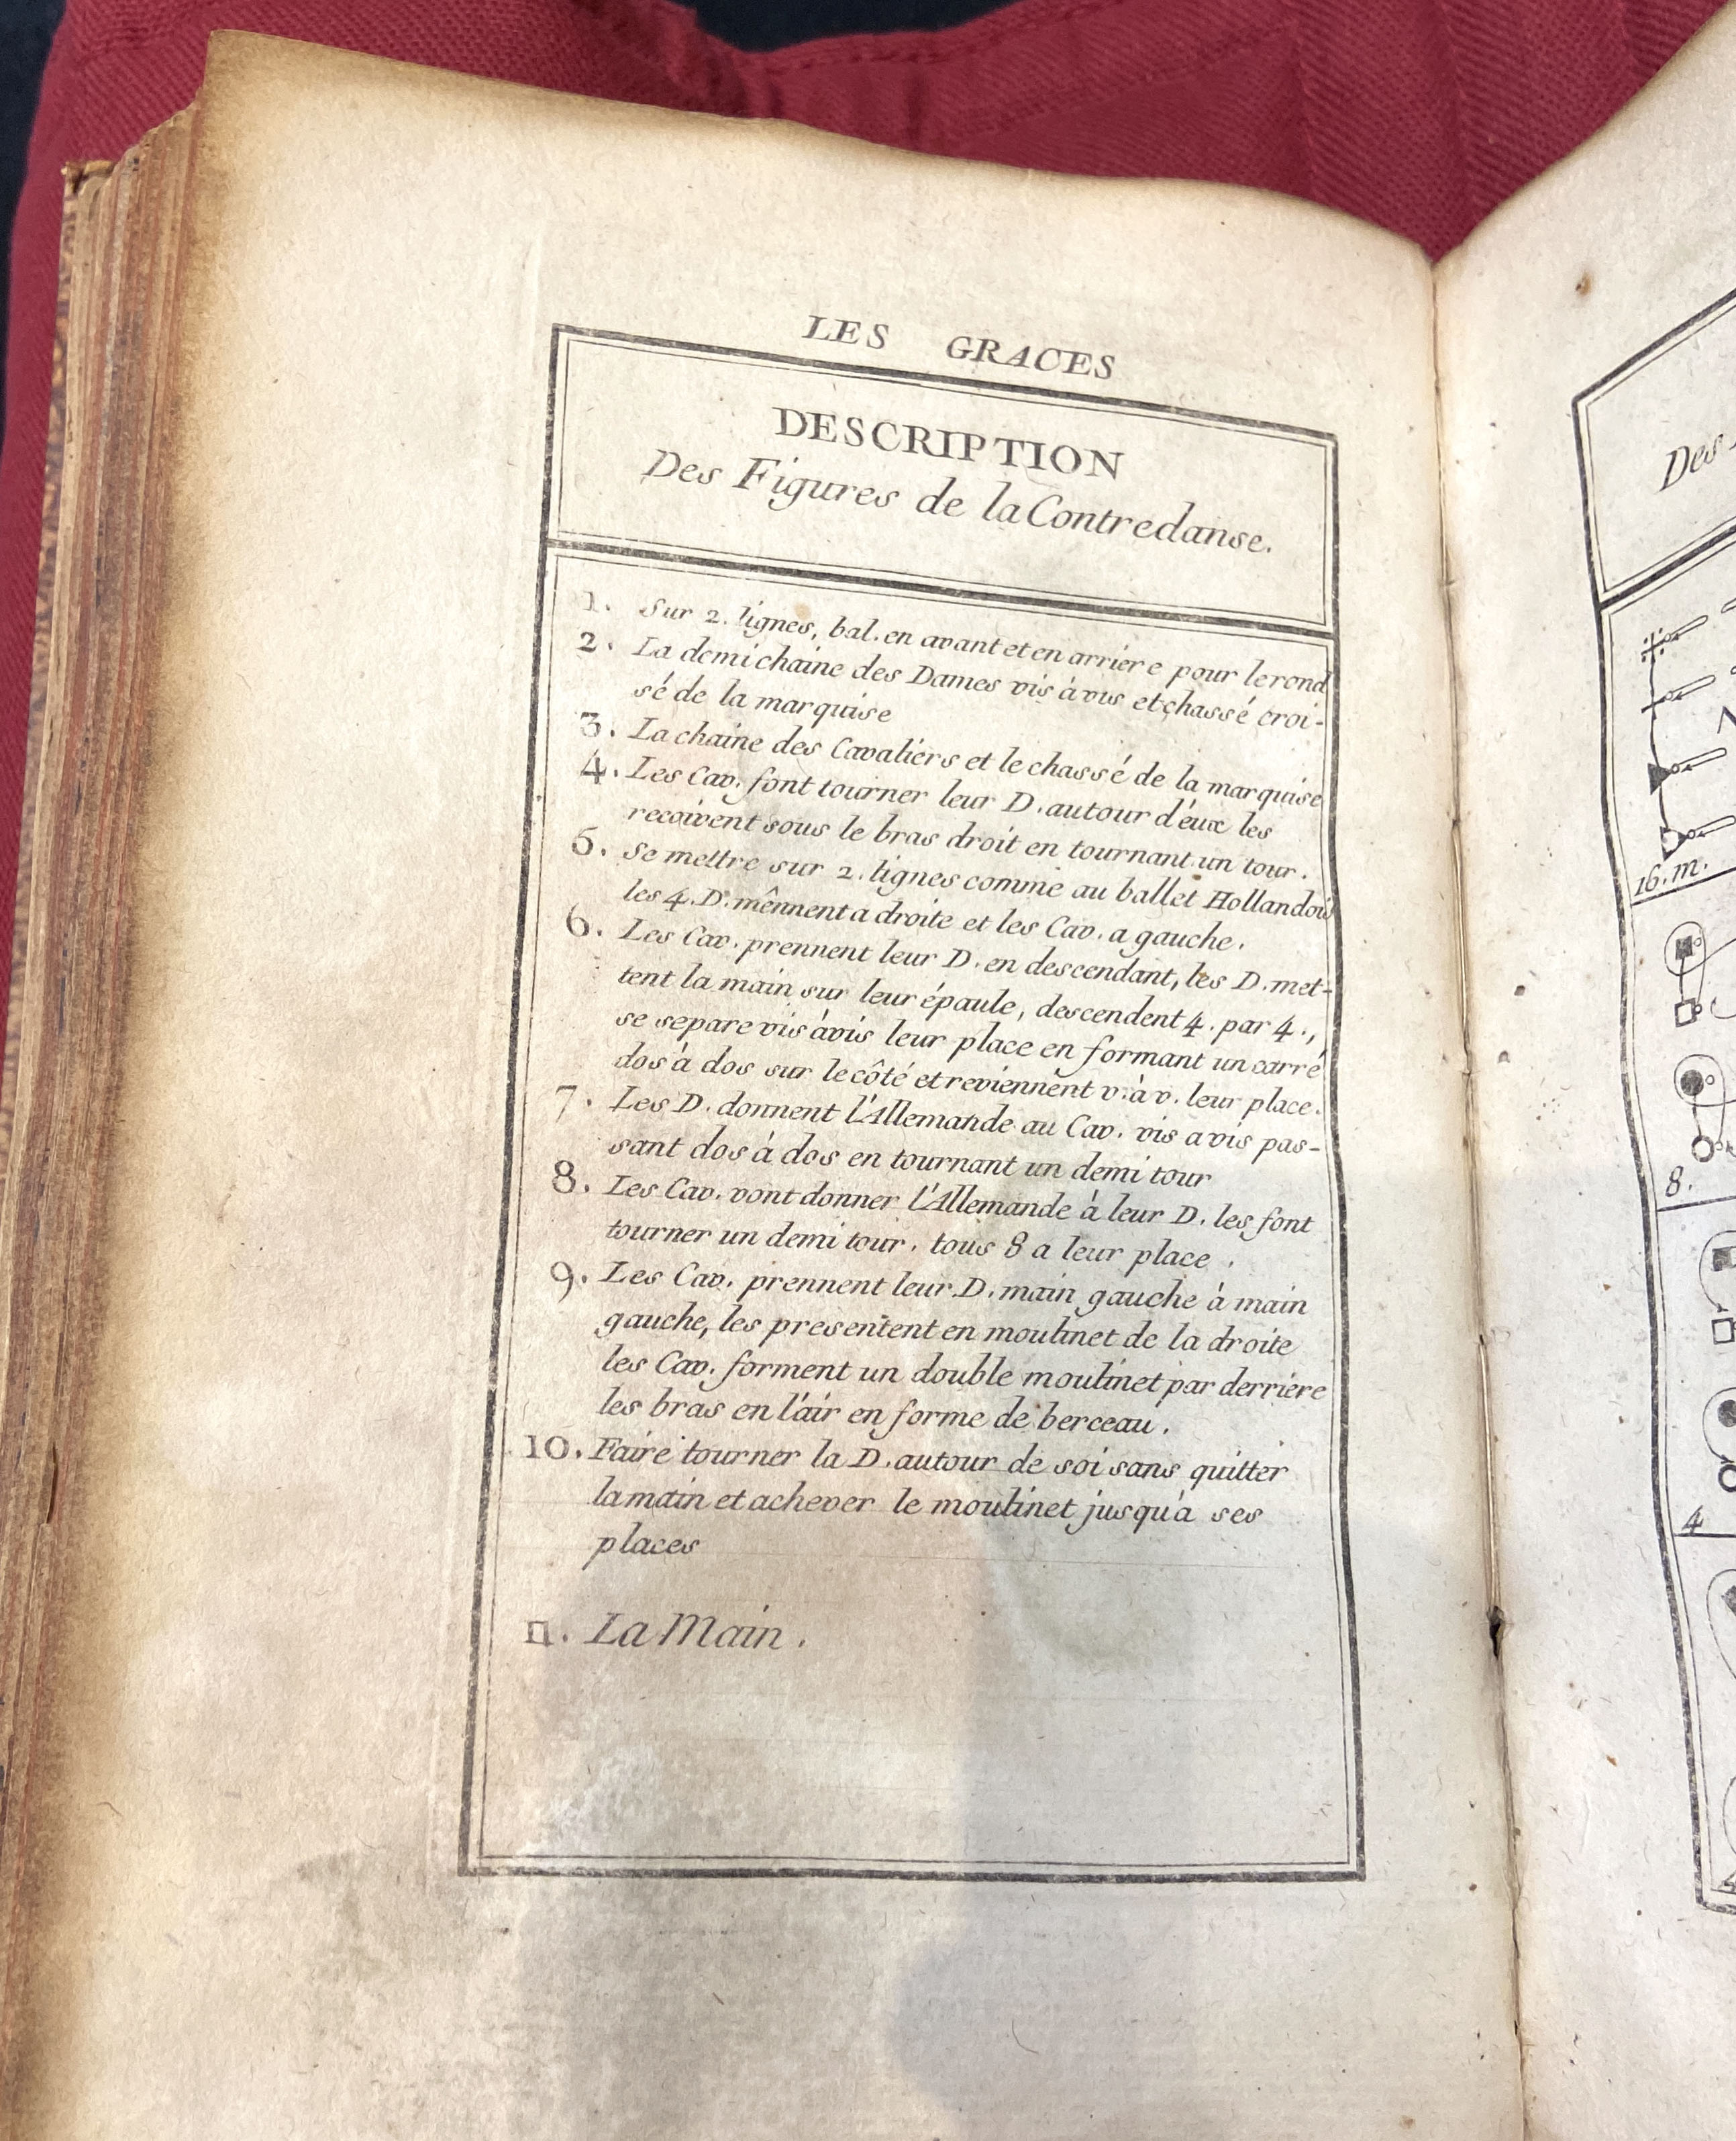 LES GRACES
DESCRIPTION
Des Figures de la Contredanse.
1. Sur 2. lignes, bal. en avant et en arriere pour le rond
2. La demi chaine des Dames vis à vis et chassé croi-
sé de la marquise
3. La chaine des Cavaliers et le chassé de la marquise
4. Les Cav. font tourner leur D. autour d'éux les
recoivent sous le bras droit en tournant un tour.
5. Se mettre sur 2. lignes comme au ballet Hollandois
les 4. D. mênnent a droite et les Cav. a gauche.
6. Les Cav. prennent leur D. en descendant, les D. met-
tent la main sur leur épaule, descendent 4. par 4.,
se separe vis àvis leur place en formant un carré
dos à dos sur le côté et reviennent v. à v. leur place.
7. Les D. donnent l'Allemande au Cav. vis a vis pas-
sant dos à dos en tournant un demi tour
8. Les Cav. vont donner l'Allemande à leur D. les font
tourner un demi tour. tous 8 a leur place.
9. Les Cav. prennent leur D. main gauche à main
gauche, les presentent en moulinet de la droite
les Cav. forment un double moulinet par derriere
les bras en l'air en forme de berceau.
10. Faire tourner la D. autour de soi sans quitter
la main et achever le moulinet jusqu'a ses
places
11. La Main.
Des
16. m.
8.
4